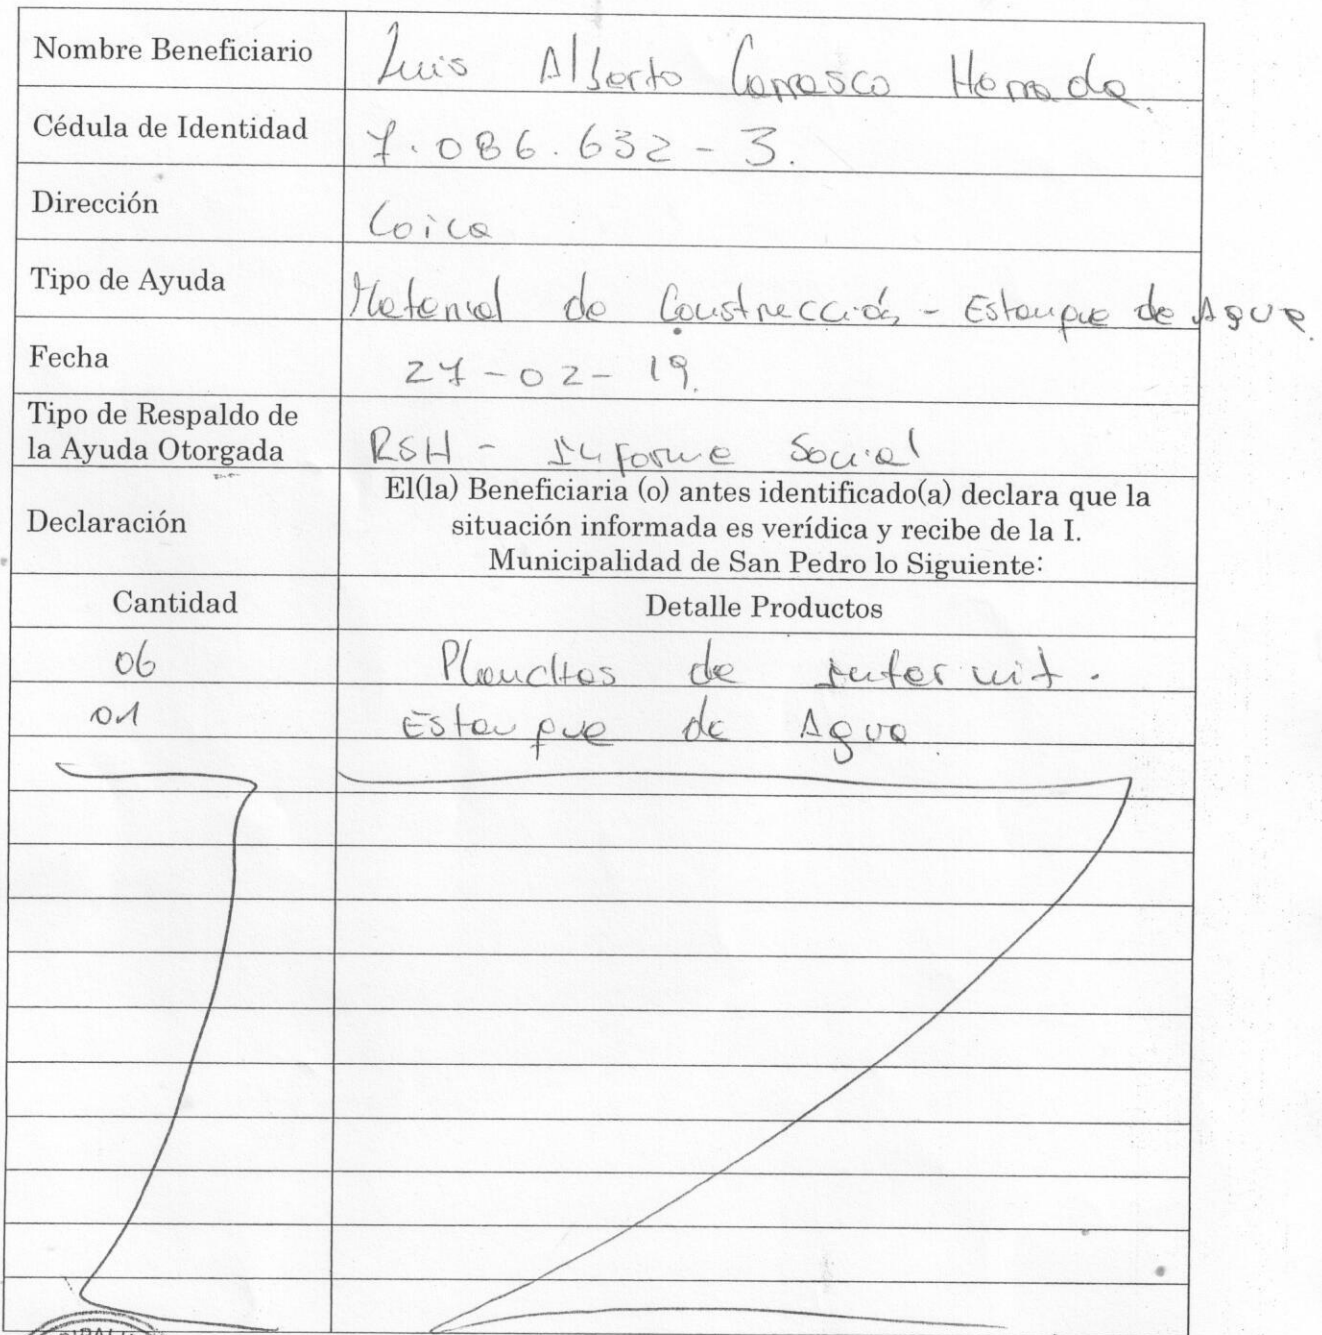 Nombre Beneficiario Luis Alberto Carrasco Horrada.
Cédula de Identidad 7.086.632-3.
Dirección Loica
Tipo de Ayuda Material de Construcción - Estanque de Agua.
Fecha 27-02-19.
Tipo de Respaldo de
la Ayuda Otorgada RSH - Informe Social
Declaración El(la) Beneficiaria (o) antes identificado(a) declara que la
situación informada es verídica y recibe de la I.
Municipalidad de San Pedro lo Siguiente:
Cantidad Detalle Productos
06 Planchas de internit.
01 Estanque de Agua